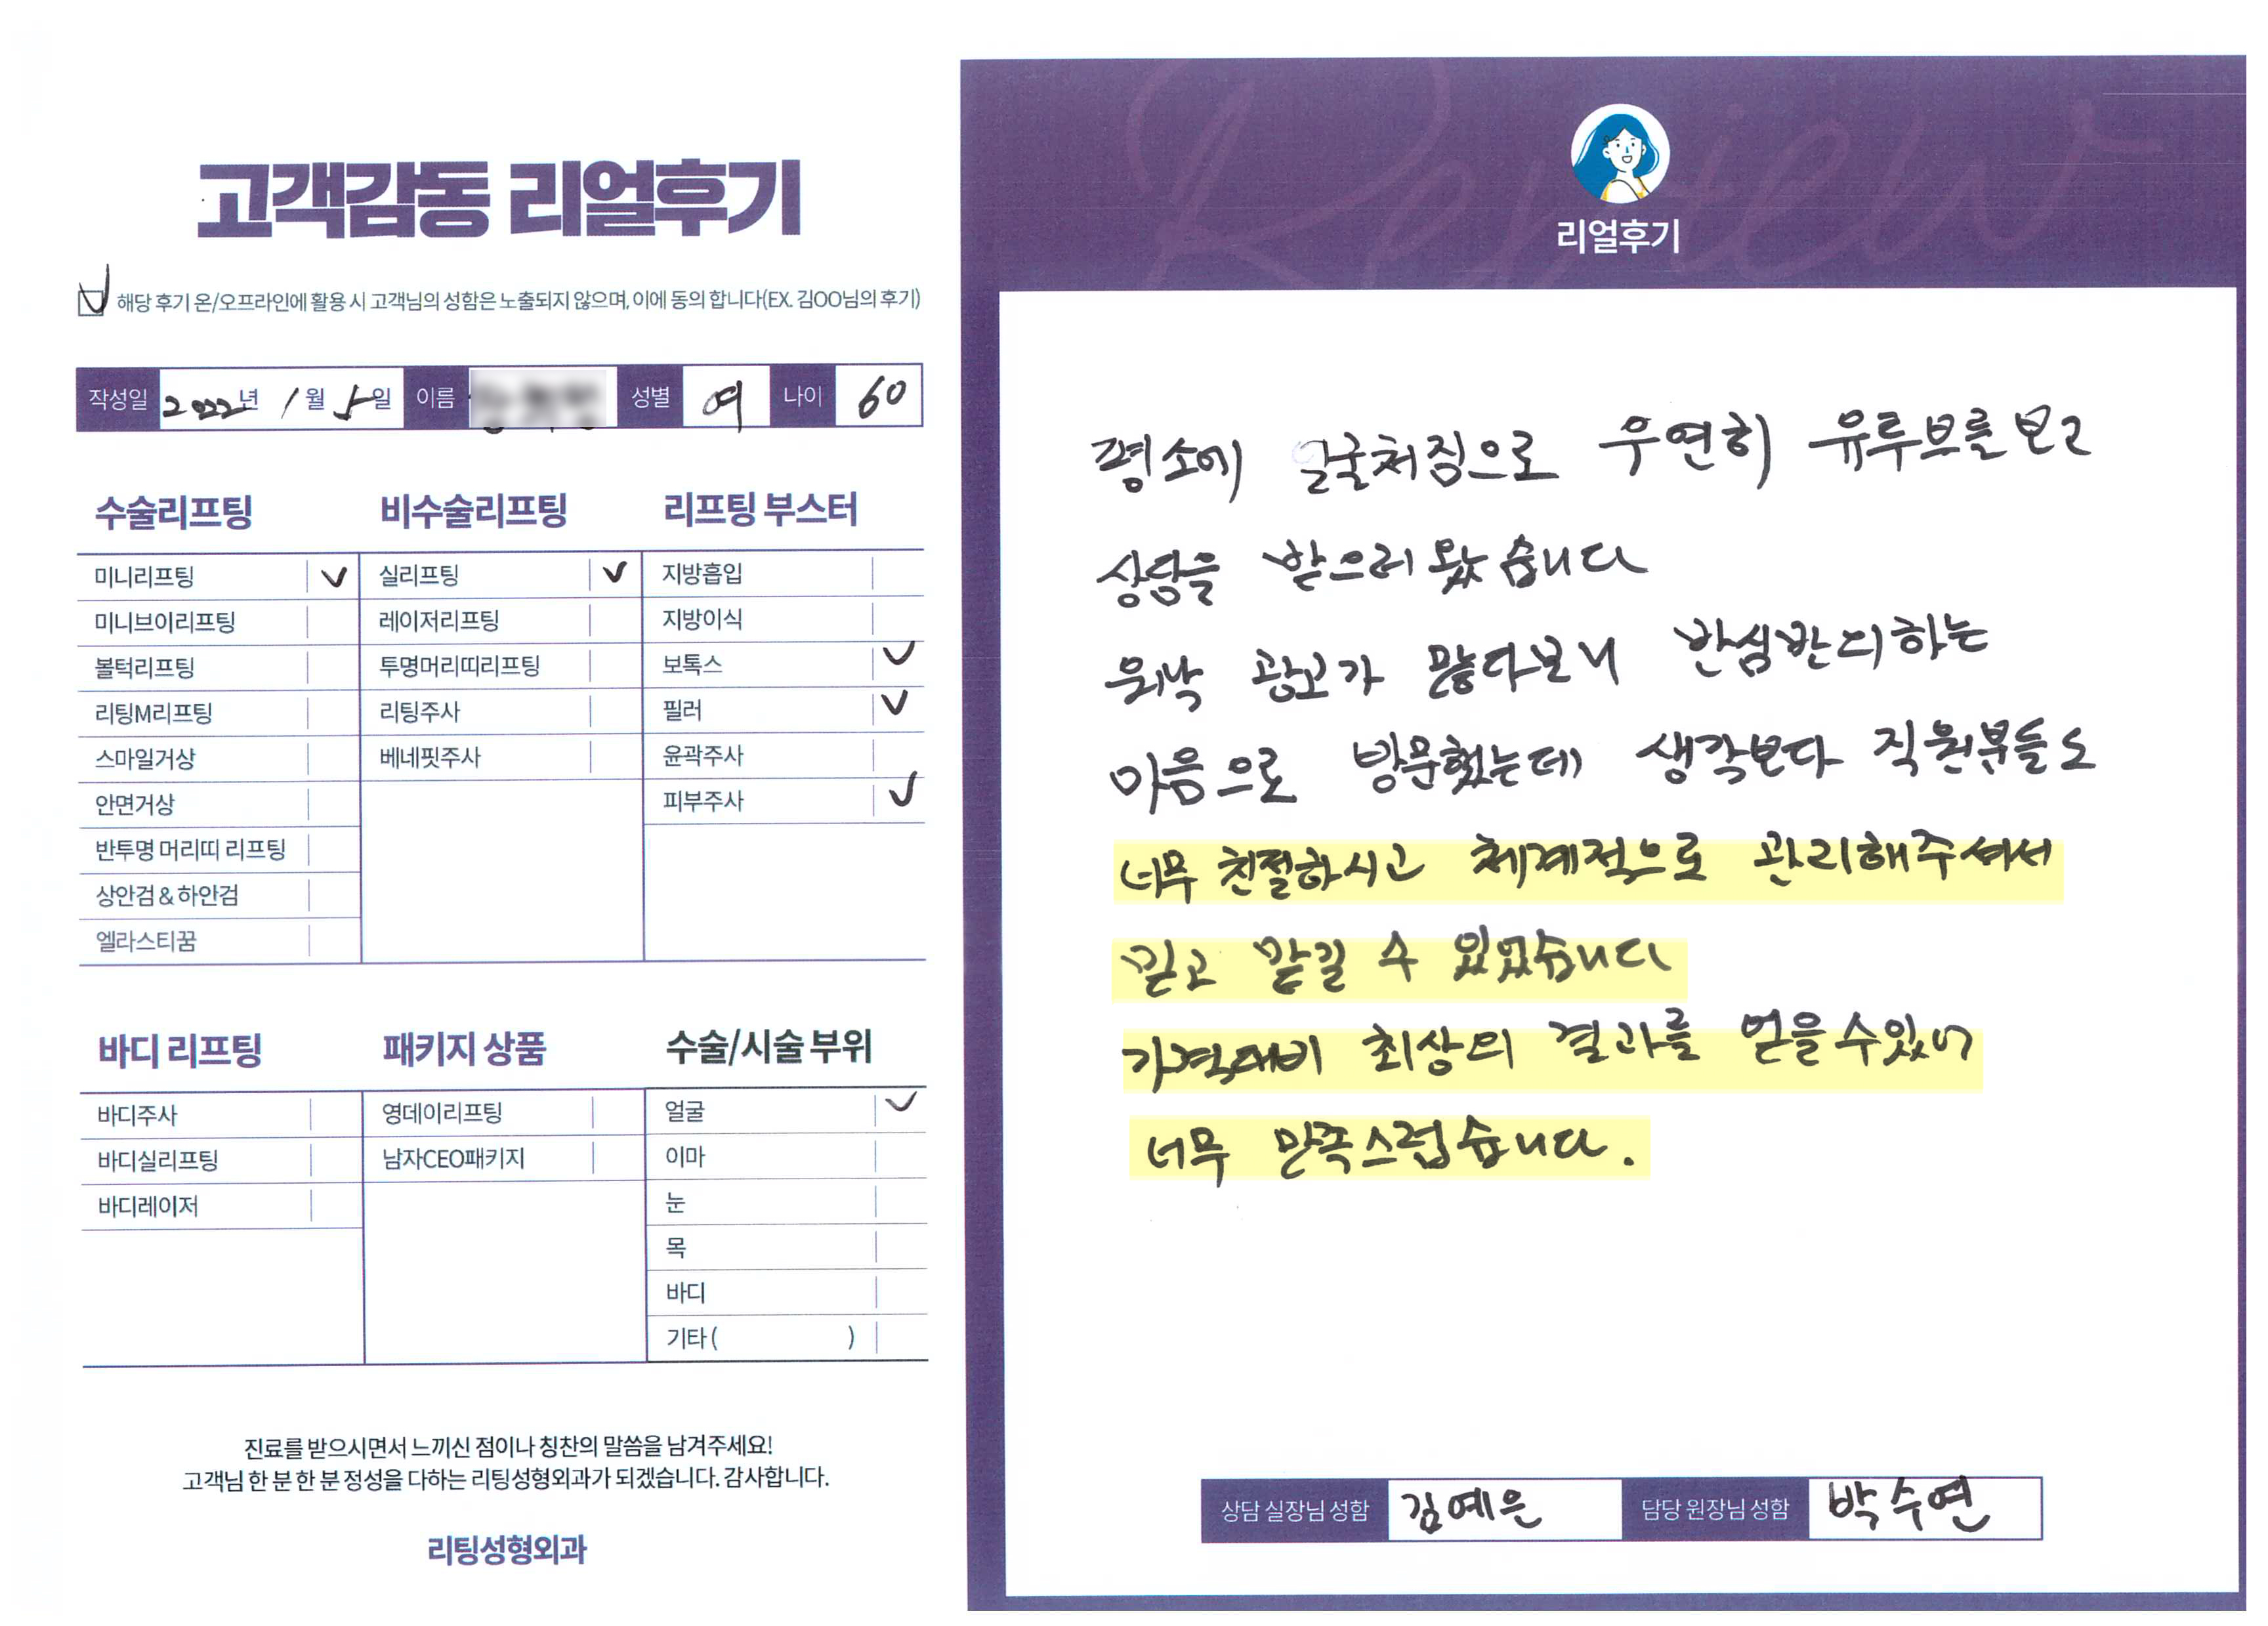 고객감동 리얼후기
해당 후기 온/오프라인에 활용 시 고객님의 성함은 노출되지 않으며, 이에 동의 합니다(EX. 김OO님의 후기)
작성일 2022년 1월 5일 이름 성별 여 나이 60
수술리프팅
미니리프팅
미니브이리프팅
볼턱리프팅
리팅M리프팅
스마일거상
안면거상
반투명 머리띠 리프팅
상안검 & 하안검
엘라스티꿈
비수술리프팅
실리프팅
레이저리프팅
투명머리띠리프팅
리팅주사
베네핏주사
리프팅 부스터
지방흡입
지방이식
보톡스
필러
윤곽주사
피부주사
바디 리프팅
바디주사
바디실리프팅
바디레이저
패키지 상품
영데이리프팅
남자CEO패키지
수술/시술 부위
얼굴
이마
눈
목
바디
기타 ( )
진료를 받으시면서 느끼신 점이나 칭찬의 말씀을 남겨주세요!
고객님 한 분 한 분 정성을 다하는 리팅성형외과가 되겠습니다. 감사합니다.
리팅성형외과
Review
리얼후기
평소에 얼굴처짐으로 우연히 유루브를 보고
상담을 받으러 왔습니다
워낙 광고가 많다보니 반심반의하는
마음으로 방문했는데 생각보다 직원분들도
너무 친절하시고 체계적으로 관리해주셔서
믿고 맡길 수 있었습니다
가격대비 최상의 결과를 얻을수있어
너무 만족스럽습니다.
상담 실장님 성함 김예은 담당 원장님 성함 박수연